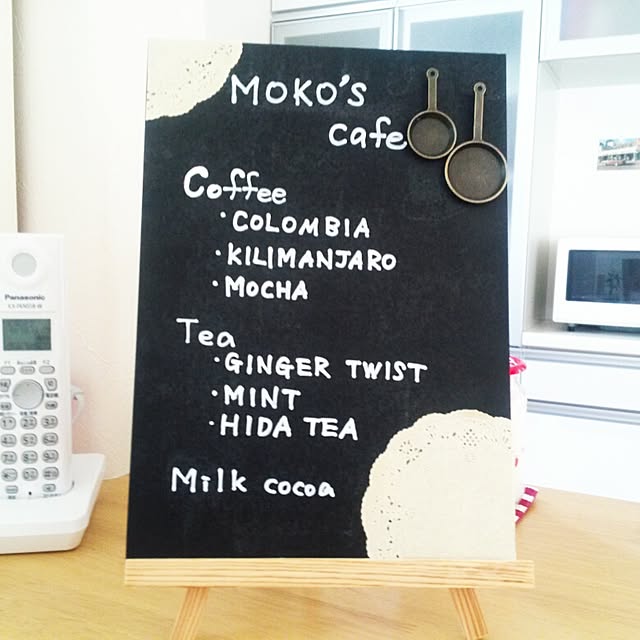 MOKO'S
cafe
Coffee
・COLOMBIA
・KILIMANJARO
・MOCHA
Tea
・GINGER TWIST
・MINT
・HIDA TEA
Milk cocoa
Panasonic